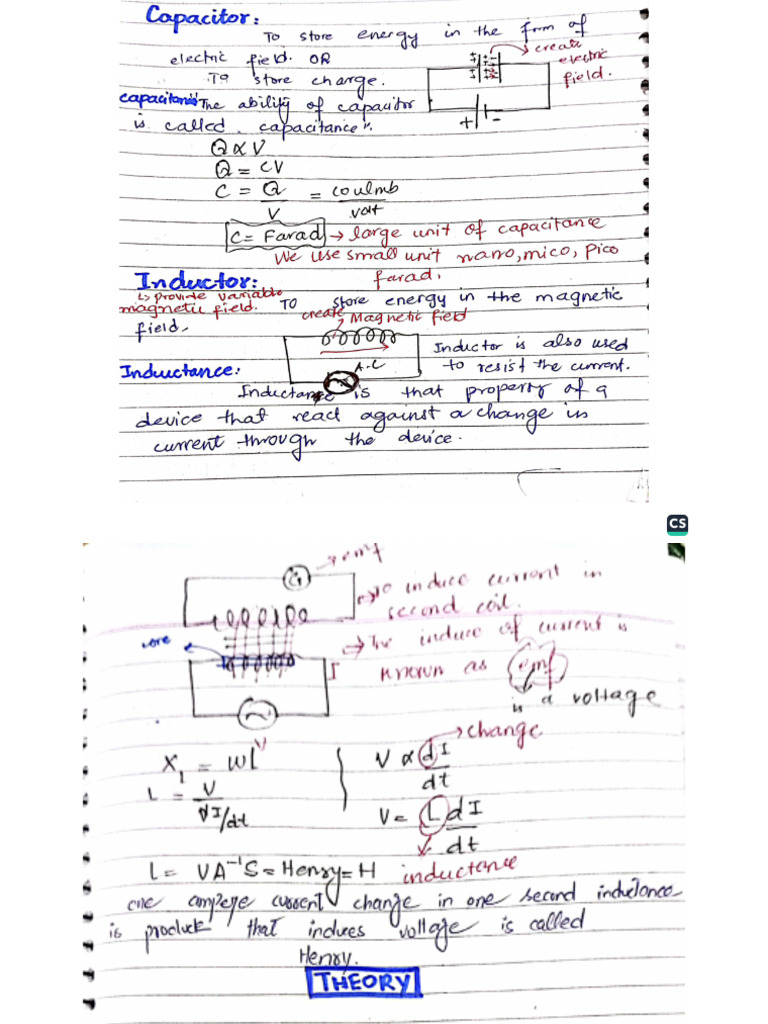 Capacitor:
To store energy in the form of
electric field. OR
To store charge.
create
electric
field.
+ -
capacitance "The ability of capacitor
is called capacitance".
Q ∝ V
Q = CV
C = Q/V = coulmb/volt
C = Farad → large unit of capacitance
We use small unit nano, mico, pico
farad.
Inductor:
↳ provide variable
magnetic field. To store energy in the magnetic
field.
create Magnetic field
A.C
Inductor is also used
to resist the current.
Inductance:
Inductance is that property of a
device that react against a change in
current through the device.
CS
G → emf
→ To induce current in
second coil.
core
I
→ The induce of current is
known as emf
is a voltage
X_L = ωL
V ∝ dI/dt → change
L = V/dI/dt
V = L dI/dt
L = VA⁻¹S = Henry = H inductance
one ampere current change in one second inductance
is product that induces voltage is called
Henry.
THEORY